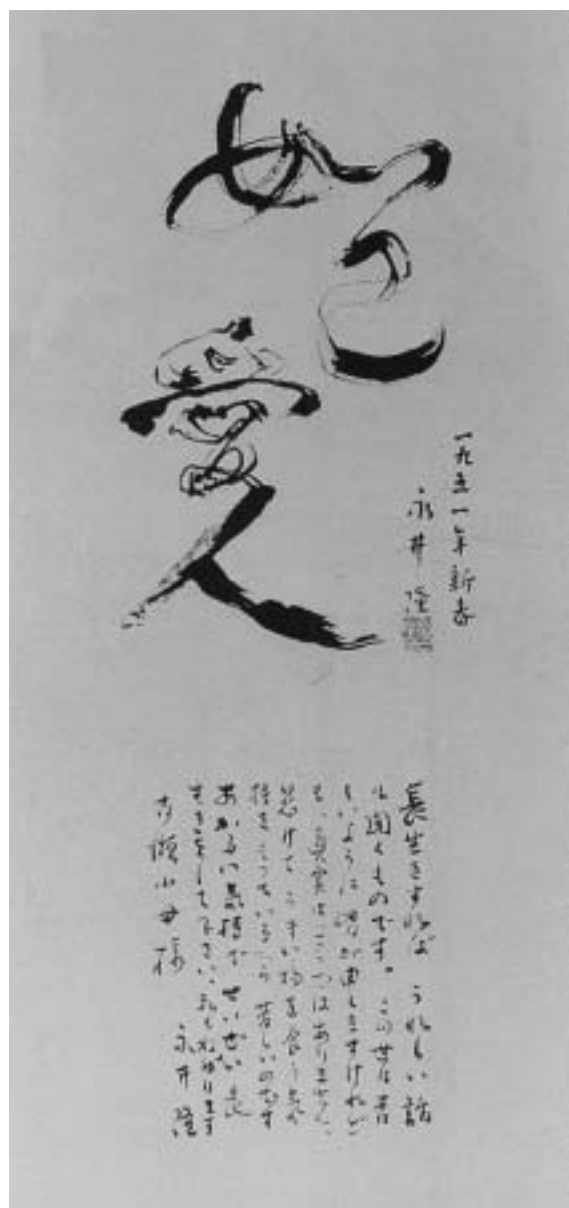 如己
愛人
一九五一年新春
永井隆
長生きすれば うれしい話
も聞くものです。この世は苦
しいように皆が申しますけれど
も、真実はそうではありません、
怠けて うまい物を食う気
持をもっているから 苦しいのです
あかるい気持で せいぜい長
生きをして下さい、私も
瀬小母様
永井隆